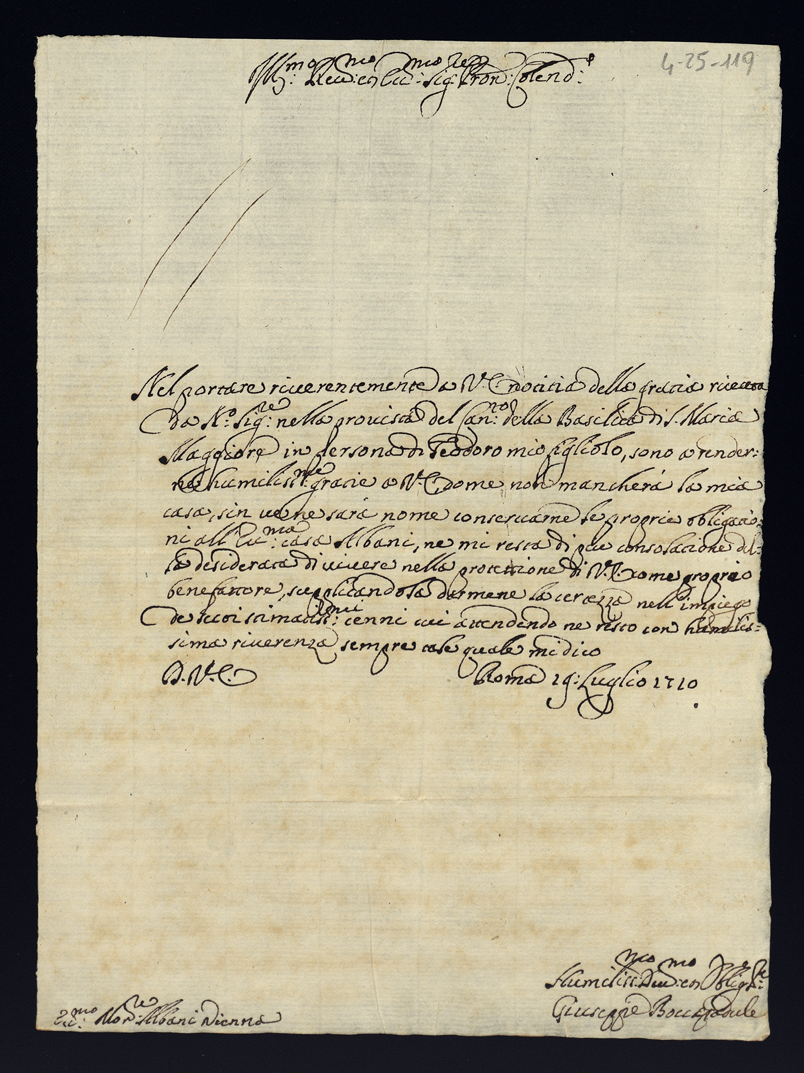 4-25-119
Ill:mo Rev:mo Sig:re Pron: Colend:
Nel portare riverentemente a V.E. notitia della gratia ricevuta
da N.o Sig:re nella provista del Can:to della Basilica di S. Maria
Maggiore in persona di Teodoro mio figliolo, sono a render-
ne humiliss:me gratie a V.E. come non mancherà la mia
casa, sin ve ne sarà nome conservarne le proprie obligatio-
ni all' casa Albani, ne mi resta di più consolatione del-
la desiderata di vivere nella protettione di V.E. come proprio
benefattore, supplicandola darmene la certezza nell' impiego
de suoi cenni cui attendendo ne resto con humilis-
sima riverenza sempre tale quale mi dico
D. V. E.
Roma 19: Luglio 1710
Humiliss:mo Dev:mo Oblig:
Giuseppe Boccapadule
Mon:re Albani Vienna